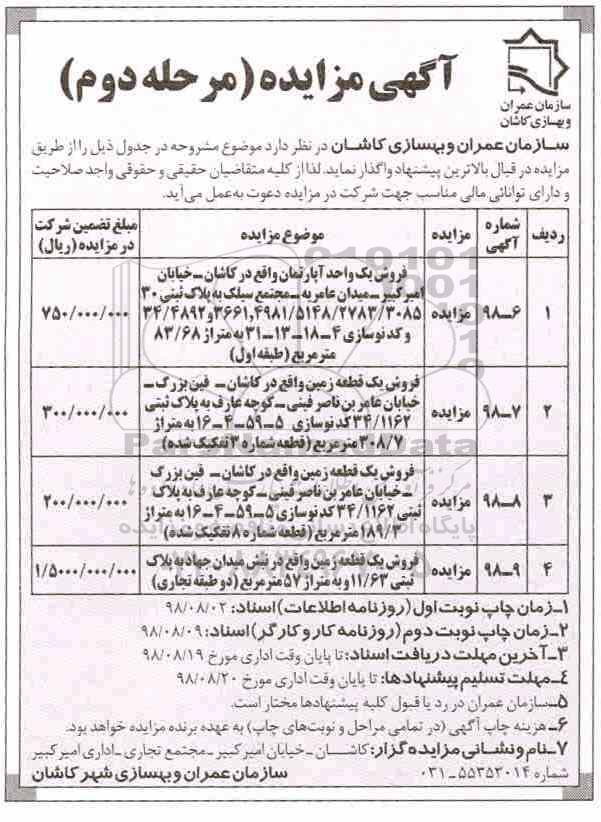 سازمان عمران
وبهسازی کاشان
آگهی مزایده (مرحله دوم)
سازمان عمران وبهسازی کاشان در نظر دارد موضوع مشروحه در جدول ذیل را از طریق
مزایده در قبال بالاترین پیشنهاد واگذار نماید. لذا از کلیه متقاضیان حقیقی و حقوقی واجد صلاحیت
و دارای توانائی مالی مناسب جهت شرکت در مزایده دعوت به‌عمل می‌آید.
ردیف | شماره آگهی | مزایده | موضوع مزایده | مبلغ تضمین شرکت در مزایده (ریال)
۱ | ۶ـ۹۸ | مزایده | فروش یک واحد آپارتمان واقع در کاشان ـ خیابان
امیرکبیر ـ میدان عامریه ـ مجتمع سیلک به پلاک ثبتی ۳۰
۳۴/۴۸۹۲و۳۶۶۱,۴۹۸۱/۵۱۴۸/۲۷۸۳/۳۰۸۵
و کد نوسازی ۴ـ۱۸ـ۱۳ـ۳۱ به متراژ ۸۳/۶۸
مترمربع (طبقه اول) | ۷۵۰/۰۰۰/۰۰۰
۲ | ۷ـ۹۸ | مزایده | فروش یک قطعه زمین واقع در کاشان ـ فین بزرگ ـ
خیابان عامر بن ناصر فینی ـ کوچه عارف به پلاک ثبتی
۳۴/۱۱۶۲ کد نوسازی ۵ـ۵۹ـ۴ـ۱۶ به متراژ
۳۰۸/۷ مترمربع (قطعه شماره ۳ تفکیک شده) | ۳۰۰/۰۰۰/۰۰۰
۳ | ۸ـ۹۸ | مزایده | فروش یک قطعه زمین واقع در کاشان ـ فین بزرگ
ـ خیابان عامر بن ناصر فینی ـ کوچه عارف به پلاک
ثبتی ۳۴/۱۱۶۲ کد نوسازی ۵ـ۵۹ـ۴ـ۱۶ به متراژ
۱۸۹/۲ متر مربع (قطعه شماره ۸ تفکیک شده) | ۲۰۰/۰۰۰/۰۰۰
۴ | ۹ـ۹۸ | مزایده | فروش یک قطعه زمین واقع در نبش میدان جهاد به پلاک
ثبتی ۱۱/۶۳ و به متراژ ۵۷ مترمربع (دو طبقه تجاری) | ۱/۵۰۰۰/۰۰۰/۰۰۰
۱ـ زمان چاپ نوبت اول (روزنامه اطلاعات) اسناد: ۹۸/۰۸/۰۲
۲ـ زمان چاپ نوبت دوم (روزنامه کار و کارگر) اسناد: ۹۸/۰۸/۰۹
۳ـ آخرین مهلت دریافت اسناد: تا پایان وقت اداری مورخ ۹۸/۰۸/۱۹
۴ـ مهلت تسلیم پیشنهادها: تا پایان وقت اداری مورخ ۹۸/۰۸/۲۰
۵ـ سازمان عمران در رد یا قبول کلیه پیشنهادها مختار است.
۶ـ هزینه چاپ آگهی (در تمامی مراحل و نوبت‌های چاپ) به عهده برنده مزایده خواهد بود.
۷ـ نام و نشانی مزایده گزار: کاشان ـ خیابان امیرکبیر ـ مجتمع تجاری ـ اداری امیرکبیر
شماره ۵۵۳۵۳۰۱۴ـ۰۳۱
سازمان عمران و بهسازی شهر کاشان